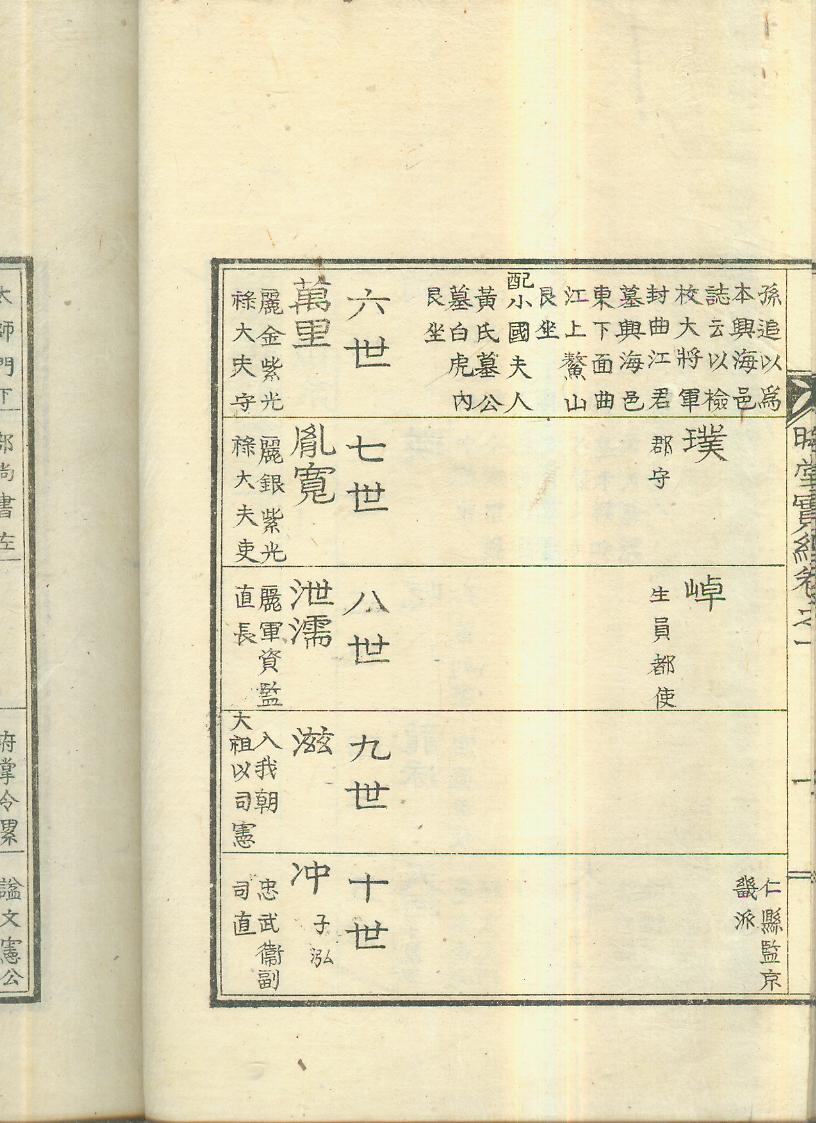 孫追以爲
本興海邑
誌云以檢
校大將軍
封曲江君
墓興海邑
東下面曲
江上鰲山
艮坐
配小國夫人
黃氏墓公
墓白虎內
艮坐
璞
郡守
㟽
生員都使
仁縣監京
畿派
六世
萬里
麗金紫光
祿大夫守
七世
胤寬
麗銀紫光
祿大夫吏
八世
泄濡
麗軍資監
直長
九世
滋
入我朝
大祖以司憲
十世
冲
子泓
忠武衛副
司直
太師門下
部尚書左
府掌令累
諡文憲公